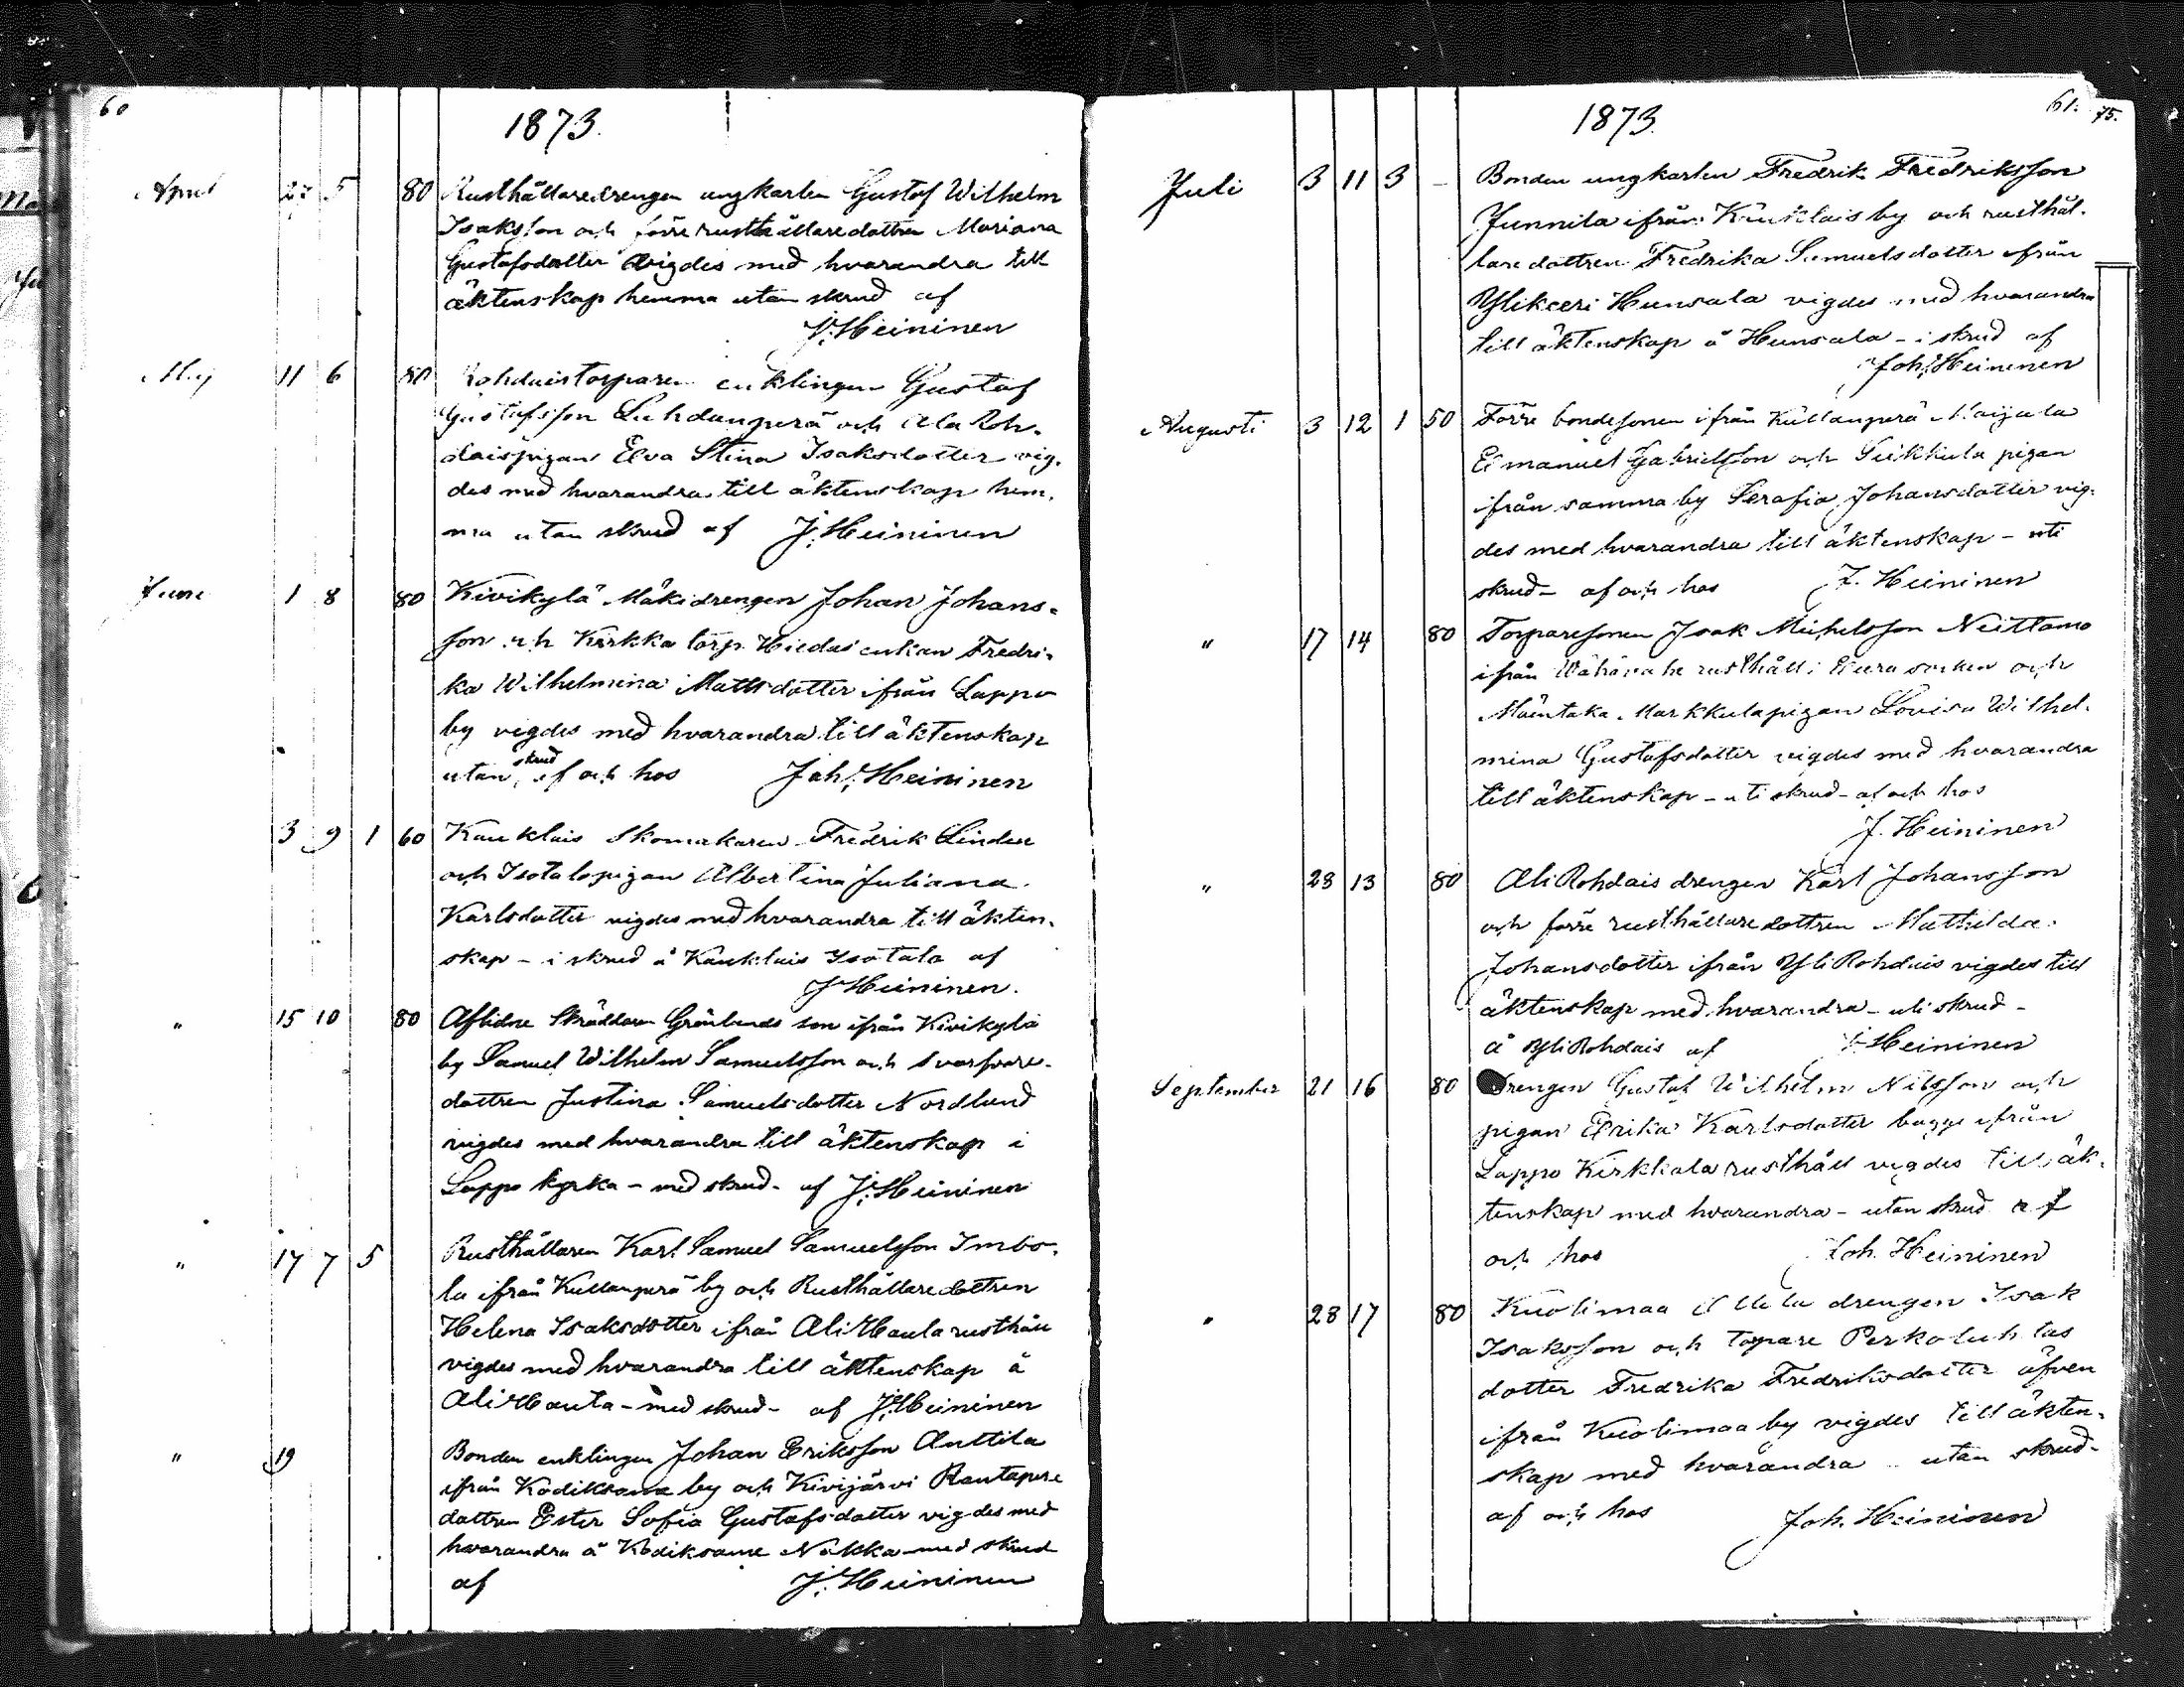 60
1873.
April 27 5 80 Rusthållaredrengen ungkarlen Gustaf Wilhelm
Isaksson och förre rusthållaredottren Mariana
Gustafsdotter vigdes med hvarandra till
äktenskap hemma utan skrud af
J. Heininen
Maj 11 6 80 Rohdaistorparen enklingen Gustaf
Gustafsson Luhdanperä och Ala Roh-
daispigan Eva Stina Isaksdotter vig-
des med hvarandra till äktenskap hem-
ma utan skrud af J. Heininen
Juni 1 8 80 Kivikylä Mäkidrengen Johan Johans-
son och Kirkka torp. Hiedas enkan Fredri-
ka Wilhelmina Mattsdotter ifrån Lappo
by vigdes med hvarandra till äktenskap
utan skrud af och hos Joh. Heininen
3 9 1 60 Kauklais Skomakaren Fredrik Linden
och Isotalopigan Albertina Juliana
Karlsdotter vigdes med hvarandra till äkten-
skap - i skrud å Kauklais Isotalo af
J Heininen.
" 15 10 80 Aflidne Skräddaren Grönlunds son ifrån Kivikylä
by Samuel Wilhelm Samuelsson och Svarfvare-
dottren Justina Samuelsdotter Nordlund
vigdes med hvarandra till äktenskap i
Lappo kyrka - med skrud - af J. Heininen
" 17 7 5 Rusthållaren Karl Samuel Samuelsson Imbo-
la ifrån Kullanperä by och Rusthållaredottren
Helena Isaksdotter ifrån Ali Hauta rusthåll
vigdes med hvarandra till äktenskap å
Ali Hauta - med skrud - af J. Heininen
" 19 Bonden enklingen Johan Eriksson Anttila
ifrån Kodiksame by och Kivijärvi Rantapere
dottren Ester Sofia Gustafsdotter vigdes med
hvarandra å Kodiksame Nokka med skrud
af J. Heininen
61. 75.
1873.
Juli 3 11 3 - Bonden ungkarlen Fredrik Fredriksson
Junnila ifrån Kauklais by och rusthål-
lare dottren Fredrika Samuelsdotter ifrån
Ylikeeri Hunsala vigdes med hvarandra
till äktenskap å Hunsala - i skrud af
Joh. Heininen
Augusti 3 12 1 50 Förre bondesonen ifrån Kullanperä Maijala
Emanuel Gabrielsson och Seikkula pigan
ifrån samma by Serafia Johansdotter vig-
des med hvarandra till äktenskap - uti
skrud - af och hos J. Heininen
" 17 14 80 Torparesonen Isak Michelsson Neittamo
ifrån rusthåll i Eura socken och
Mäentaka Markkulapigan Lovisa Wilhel-
mina Gustafsdotter vigdes med hvarandra
till äktenskap - uti skrud - af och hos
J. Heininen
" 23 13 80 Ali Rohdais drengen Karl Johansson
och förre rusthållaredottren Mathilda
Johansdotter ifrån Yli Rohdais vigdes till
äktenskap med hvarandra - uti skrud -
å Yli Rohdais af J. Heininen
September 21 16 80 Drengen Gustaf Wilhelm Nilsson och
pigan Erika Karlsdotter bagge ifrån
Lappo Kirkkala rusthåll vigdes till äk-
tenskap med hvarandra - utan skrud af
och hos Joh. Heininen
" 28 17 80 Kuolimaa drengen Isak
Isaksson och Torpare Perkoluhtas
dotter Fredrika Fredriksdotter äfven
ifrån Kuolimaa by vigdes till äkten-
skap med hvarandra - utan skrud -
af och hos Joh. Heininen